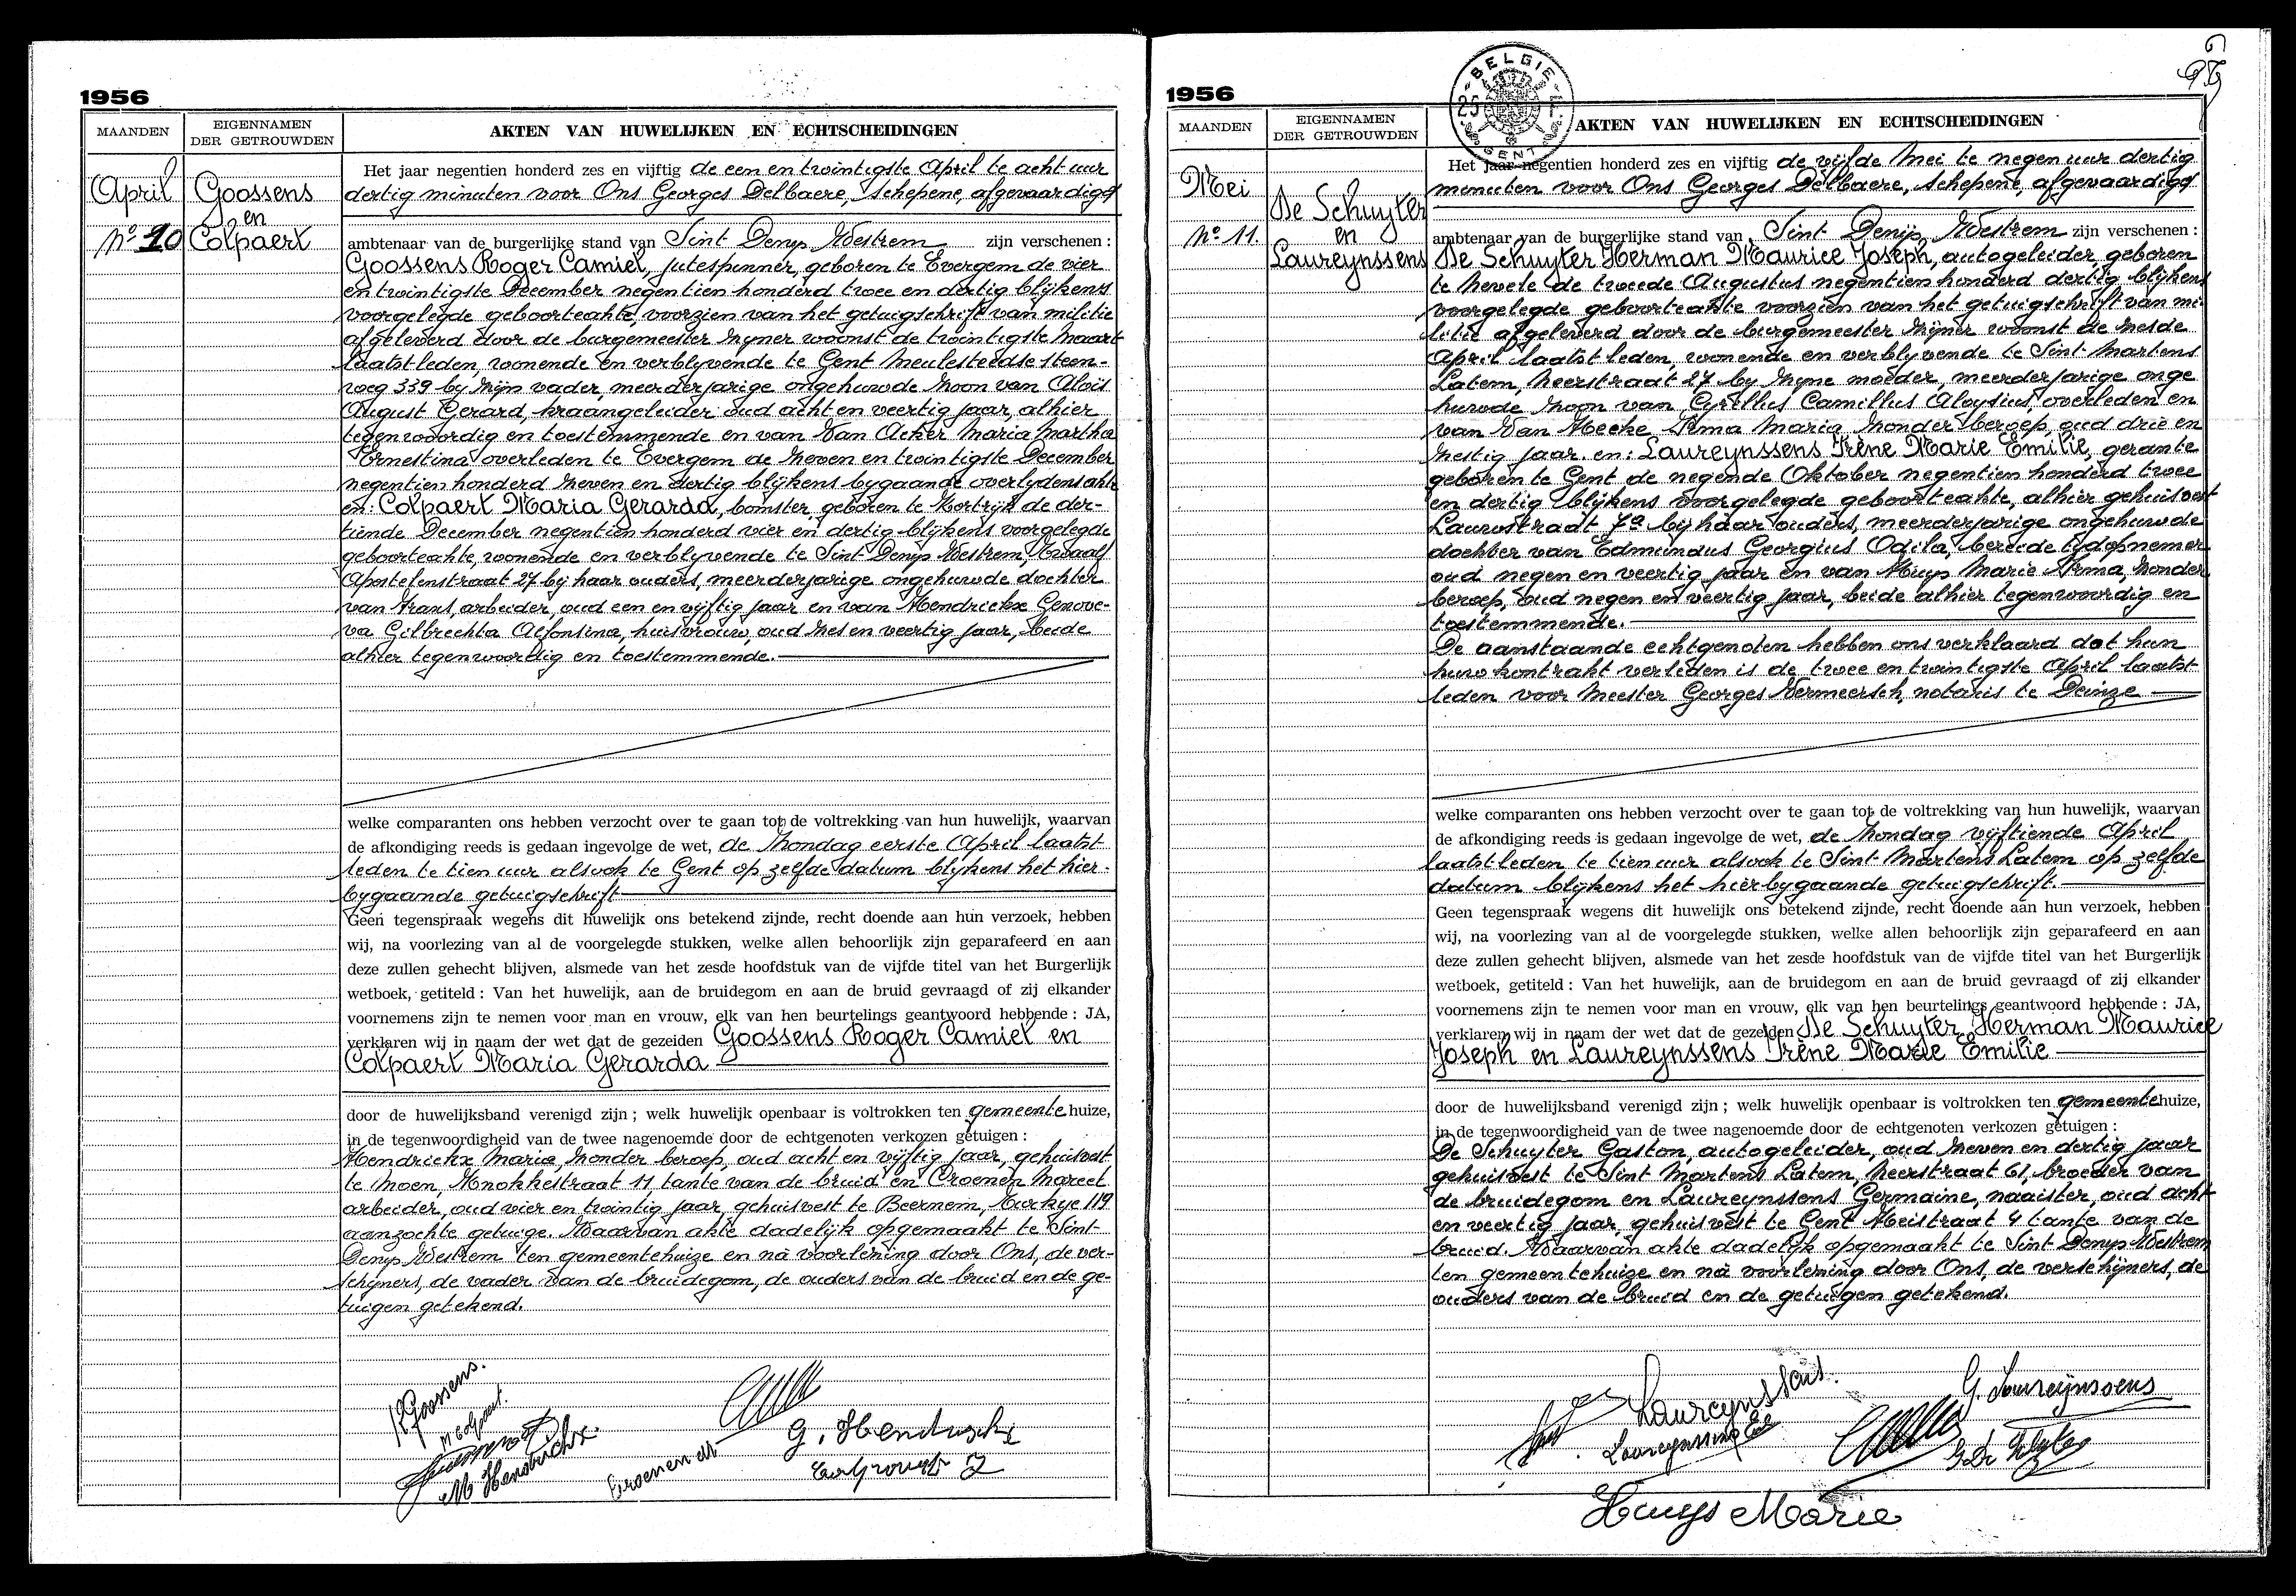 1956
MAANDEN
EIGENNAMEN
DER GETROUWDEN
AKTEN VAN HUWELIJKEN EN ECHTSCHEIDINGEN
April
Nº 10
Goossens
en
Colpaert
Het jaar negentien honderd zes en vijftig de een en twintigste April te acht uur
dertig minuten voor Ons Georges Delbaere, schepene, afgevaardigd
ambtenaar van de burgerlijke stand van Sint Denijs Westrem zijn verschenen :
Goossens Roger Camiel, jutespinner, geboren te Evergem de vier
en twintigste December negentien honderd twee en dertig blijkens
voorgelegde geboorteakte, voorzien van het getuigschrift van militie
afgeleverd door de burgemeester zijner woonst de twintigste Maart
laatstleden, wonende en verblyvende te Gent Meulesteedse steen-
weg 339 by zijn vader, meerderjarige ongehuwde zoon van Aloïs
August Gerard, kraangeleider oud acht en veertig jaar, alhier
tegenwoordig en toestemmende en van Van Acker Maria Martha
Ernestina overleden te Evergem de zeven en twintigste December
negentien honderd zeven en dertig blijkens bygaande overlydensakte
en: Colpaert Maria Gerarda, bomster, geboren te Kortrijk de der-
tiende December negentien honderd vier en dertig blijkens voorgelegde
geboorteakte, wonende en verblyvende te Sint Denijs Westrem, Twaalf
Apostelenstraat 27 bij haar ouders, meerderjarige ongehuwde dochter
van Frans, arbeider, oud een en vijftig jaar en van Hendrickx Genove-
va Gilbrechta Alfonsina, huisvrouw, oud zes en veertig jaar, beide
alhier tegenwoordig en toestemmende.
welke comparanten ons hebben verzocht over te gaan tot de voltrekking van hun huwelijk, waarvan
de afkondiging reeds is gedaan ingevolge de wet, de zondag eerste April laatst
leden te tien uur alsook te Gent op zelfde datum blijkens het hier-
bygaande getuigschrift
Geen tegenspraak wegens dit huwelijk ons betekend zijnde, recht doende aan hun verzoek, hebben
wij, na voorlezing van al de voorgelegde stukken, welke allen behoorlijk zijn geparafeerd en aan
deze zullen gehecht blijven, alsmede van het zesde hoofdstuk van de vijfde titel van het Burgerlijk
wetboek, getiteld : Van het huwelijk, aan de bruidegom en aan de bruid gevraagd of zij elkander
voornemens zijn te nemen voor man en vrouw, elk van hen beurtelings geantwoord hebbende : JA,
verklaren wij in naam der wet dat de gezeiden Goossens Roger Camiel en
Colpaert Maria Gerarda
door de huwelijksband verenigd zijn ; welk huwelijk openbaar is voltrokken ten gemeentehuize,
in de tegenwoordigheid van de twee nagenoemde door de echtgenoten verkozen getuigen :
Hendrickx Maria, zonder beroep, oud acht en vijftig jaar, gehuisvest
te Moen, Knokkestraat 11 tante van de bruid en Croenen Marcel
arbeider, oud vier en twintig jaar, gehuisvest te Beernem, 119
aanzochte getuige. Waarvan akte dadelijk opgemaakt te Sint-
Denijs Westrem ten gemeentehuize en nà voorlezing door Ons, de ver-
schijners, de vader van de bruidegom, de ouders van de bruid en de ge-
tuigen getekend.
R Goossens.
M Colpaert.
M Hendrickx.
Croenen M
G. Hendrickx
1956
BELGIE
25 F
GENT
MAANDEN
EIGENNAMEN
DER GETROUWDEN
AKTEN VAN HUWELIJKEN EN ECHTSCHEIDINGEN
Mei
Nº 11.
De Schuyter
en
Laureynssens
Het jaar negentien honderd zes en vijftig de vijfde Mei te negen uur dertig
minuten voor Ons Georges Delbaere, schepene, afgevaardigd
ambtenaar van de burgerlijke stand van Sint Denijs Westrem zijn verschenen :
De Schuyter Herman Maurice Joseph, autogeleider, geboren
te Nevele de tweede Augustus negentien honderd dertig blijkens
voorgelegde geboorteakte voorzien van het getuigschrift van mi-
litie afgeleverd door de burgemeester zijner woonst de zesde
April laatstleden, wonende en verblyvende te Sint Martens
Latem, Heerstraat 27 by zijne moeder, meerderjarige onge
huwde zoon van Cyrillus Camillus Aloysius, overleden en
van Van Hecke Irma Maria zonder beroep, oud drie en
zestig jaar. en: Laureynssens Irène Marie Emilie, gerante
geboren te Gent de negende Oktober negentien honderd twee
en dertig blijkens voorgelegde geboorteakte, alhier gehuisvest
Lauwstraat 7a bij haar ouders, meerderjarige ongehuwde
dochter van Edmundus Georgius Odila, bereide tijdopnemer
oud negen en veertig jaar en van Huys Marie Irma, zonder
beroep, oud negen en veertig jaar, beide alhier tegenwoordig en
toestemmende.
De aanstaande echtgenoten hebben ons verklaard dat hun
huwkontrakt verleden is de twee en twintigste April laatst
leden voor Meester Georges Vermeersch, notaris te Deinze
welke comparanten ons hebben verzocht over te gaan tot de voltrekking van hun huwelijk, waarvan
de afkondiging reeds is gedaan ingevolge de wet, de zondag vijftiende April
laatstleden te tien uur alsook te Sint Martens Latem op zelfde
datum blijkens het hierbygaande getuigschrift.
Geen tegenspraak wegens dit huwelijk ons betekend zijnde, recht doende aan hun verzoek, hebben
wij, na voorlezing van al de voorgelegde stukken, welke allen behoorlijk zijn geparafeerd en aan
deze zullen gehecht blijven, alsmede van het zesde hoofdstuk van de vijfde titel van het Burgerlijk
wetboek, getiteld : Van het huwelijk, aan de bruidegom en aan de bruid gevraagd of zij elkander
voornemens zijn te nemen voor man en vrouw, elk van hen beurtelings geantwoord hebbende : JA,
verklaren wij in naam der wet dat de gezeiden De Schuyter Herman Maurice
Joseph en Laureynssens Irène Marie Emilie
door de huwelijksband verenigd zijn ; welk huwelijk openbaar is voltrokken ten gemeentehuize,
in de tegenwoordigheid van de twee nagenoemde door de echtgenoten verkozen getuigen :
De Schuyter Gaston, autogeleider, oud zeven en dertig jaar
gehuisvest te Sint Martens Latem, Heerstraat 61, broeder van
de bruidegom en Laureynssens Germaine, naaister, oud acht
en veertig jaar, gehuisvest te Gent Meistraat 4 tante van de
bruid. Waarvan akte dadelijk opgemaakt te Sint Denijs Westrem
ten gemeentehuize en nà voorlezing door Ons, de verschijners, de
ouders van de bruid en de getuigen getekend.
Laureynssens.
G. Laureynssens
Laureynssens
Huys Marie